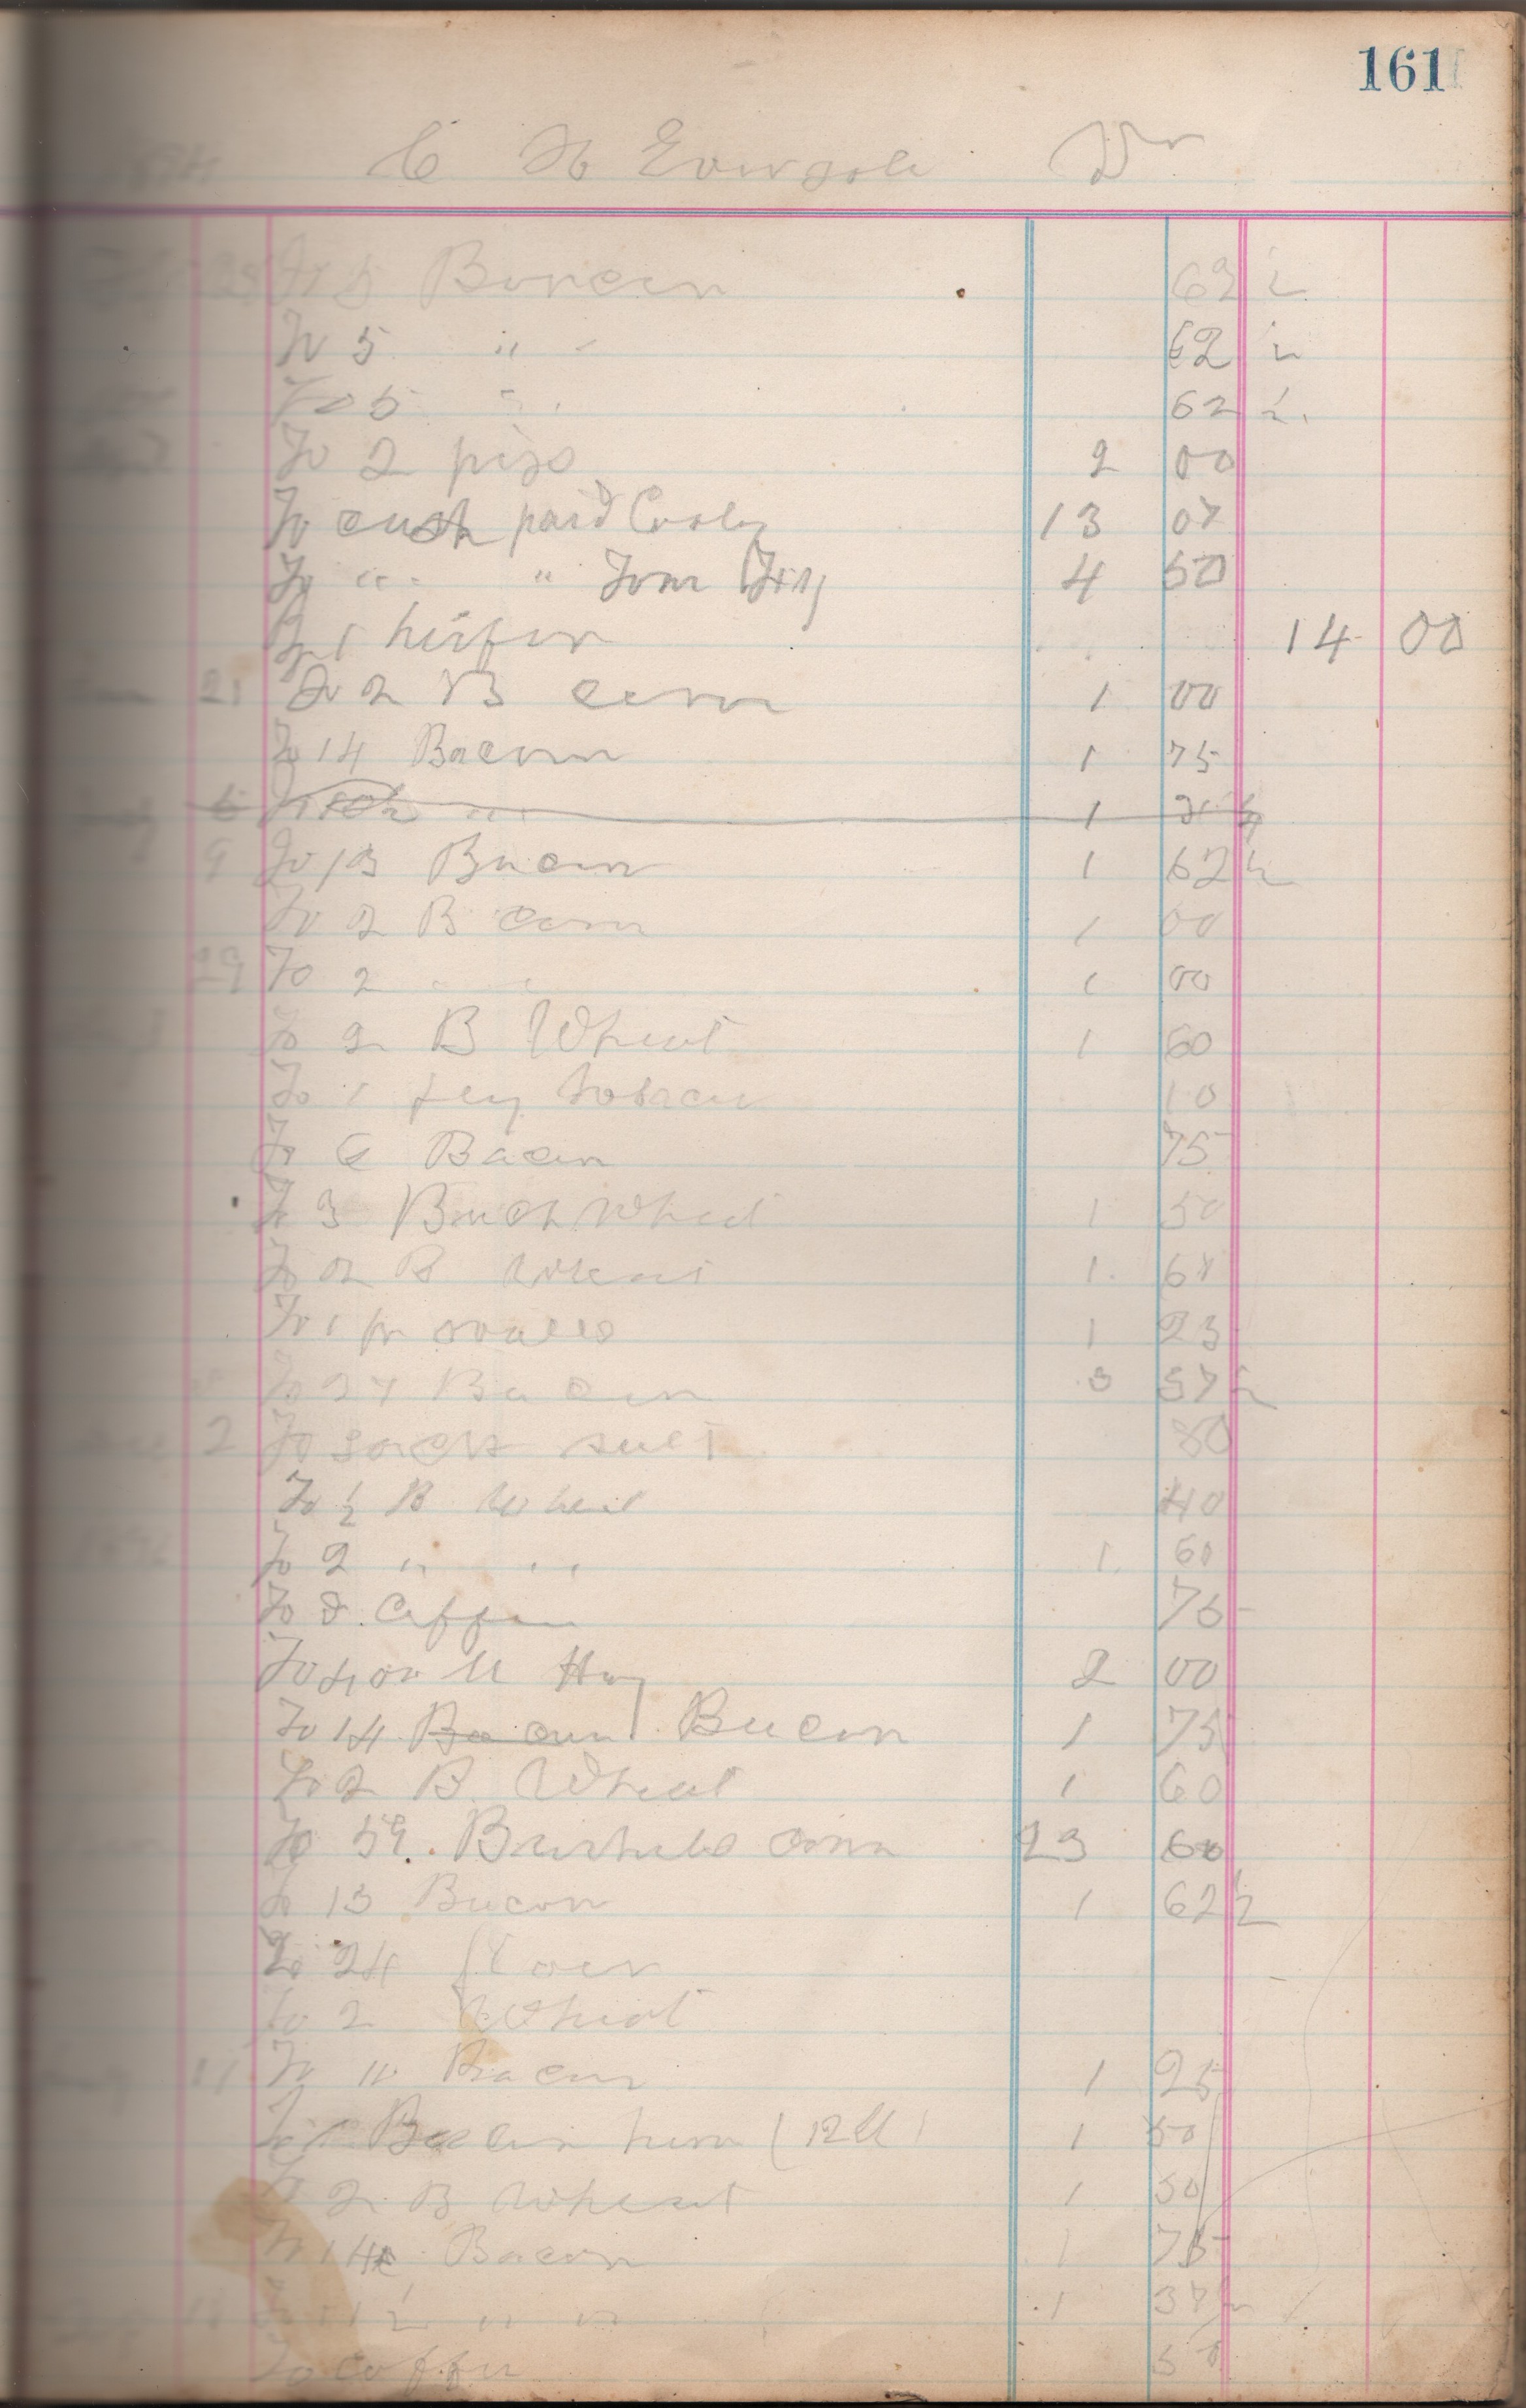 161
C H Dr
To 5 Bacon 62 ½
To 5 " " 62 ½
To 5 " " 62 ½
To 2 pigs 2 00
To cash paid Cooley 13 00
To " " Tom 4 50
By 1 heifer 14 00
21 To 2 B corn 1 00
To 14 Bacon 1 75
6 " 1
9 To 13 Bacon 1 62 ½
To 2 B corn 1 00
29 To 2 " " 1 00
To 2 B Wheat 1 60
To 1 tobacco 10
To 6 Bacon 75
To 3 Buch Wheat 1 50
To 2 B Wheat 1 60
To 1 pr 1 25
To 27 Bacon 3 37 ½
2 To sack salt 80
To ½ B Wheat 40
To 2 " " 1 60
To Coffen 75
To 400 ll Hay 2 00
To 14 Bacon Bacon 1 75
To 2 B Wheat 1 60
To 59 Bushels corn 23 60
To 13 Bacon 1 62 ½
To 24 flour
To 2 Wheat
11 To Bacon 1 25
To Bacon ham (12 ll) 1 50
To 2 B Wheat 1 50
To 14 Bacon 1 75
To 11 " " 1 37 ½
To coffee 50